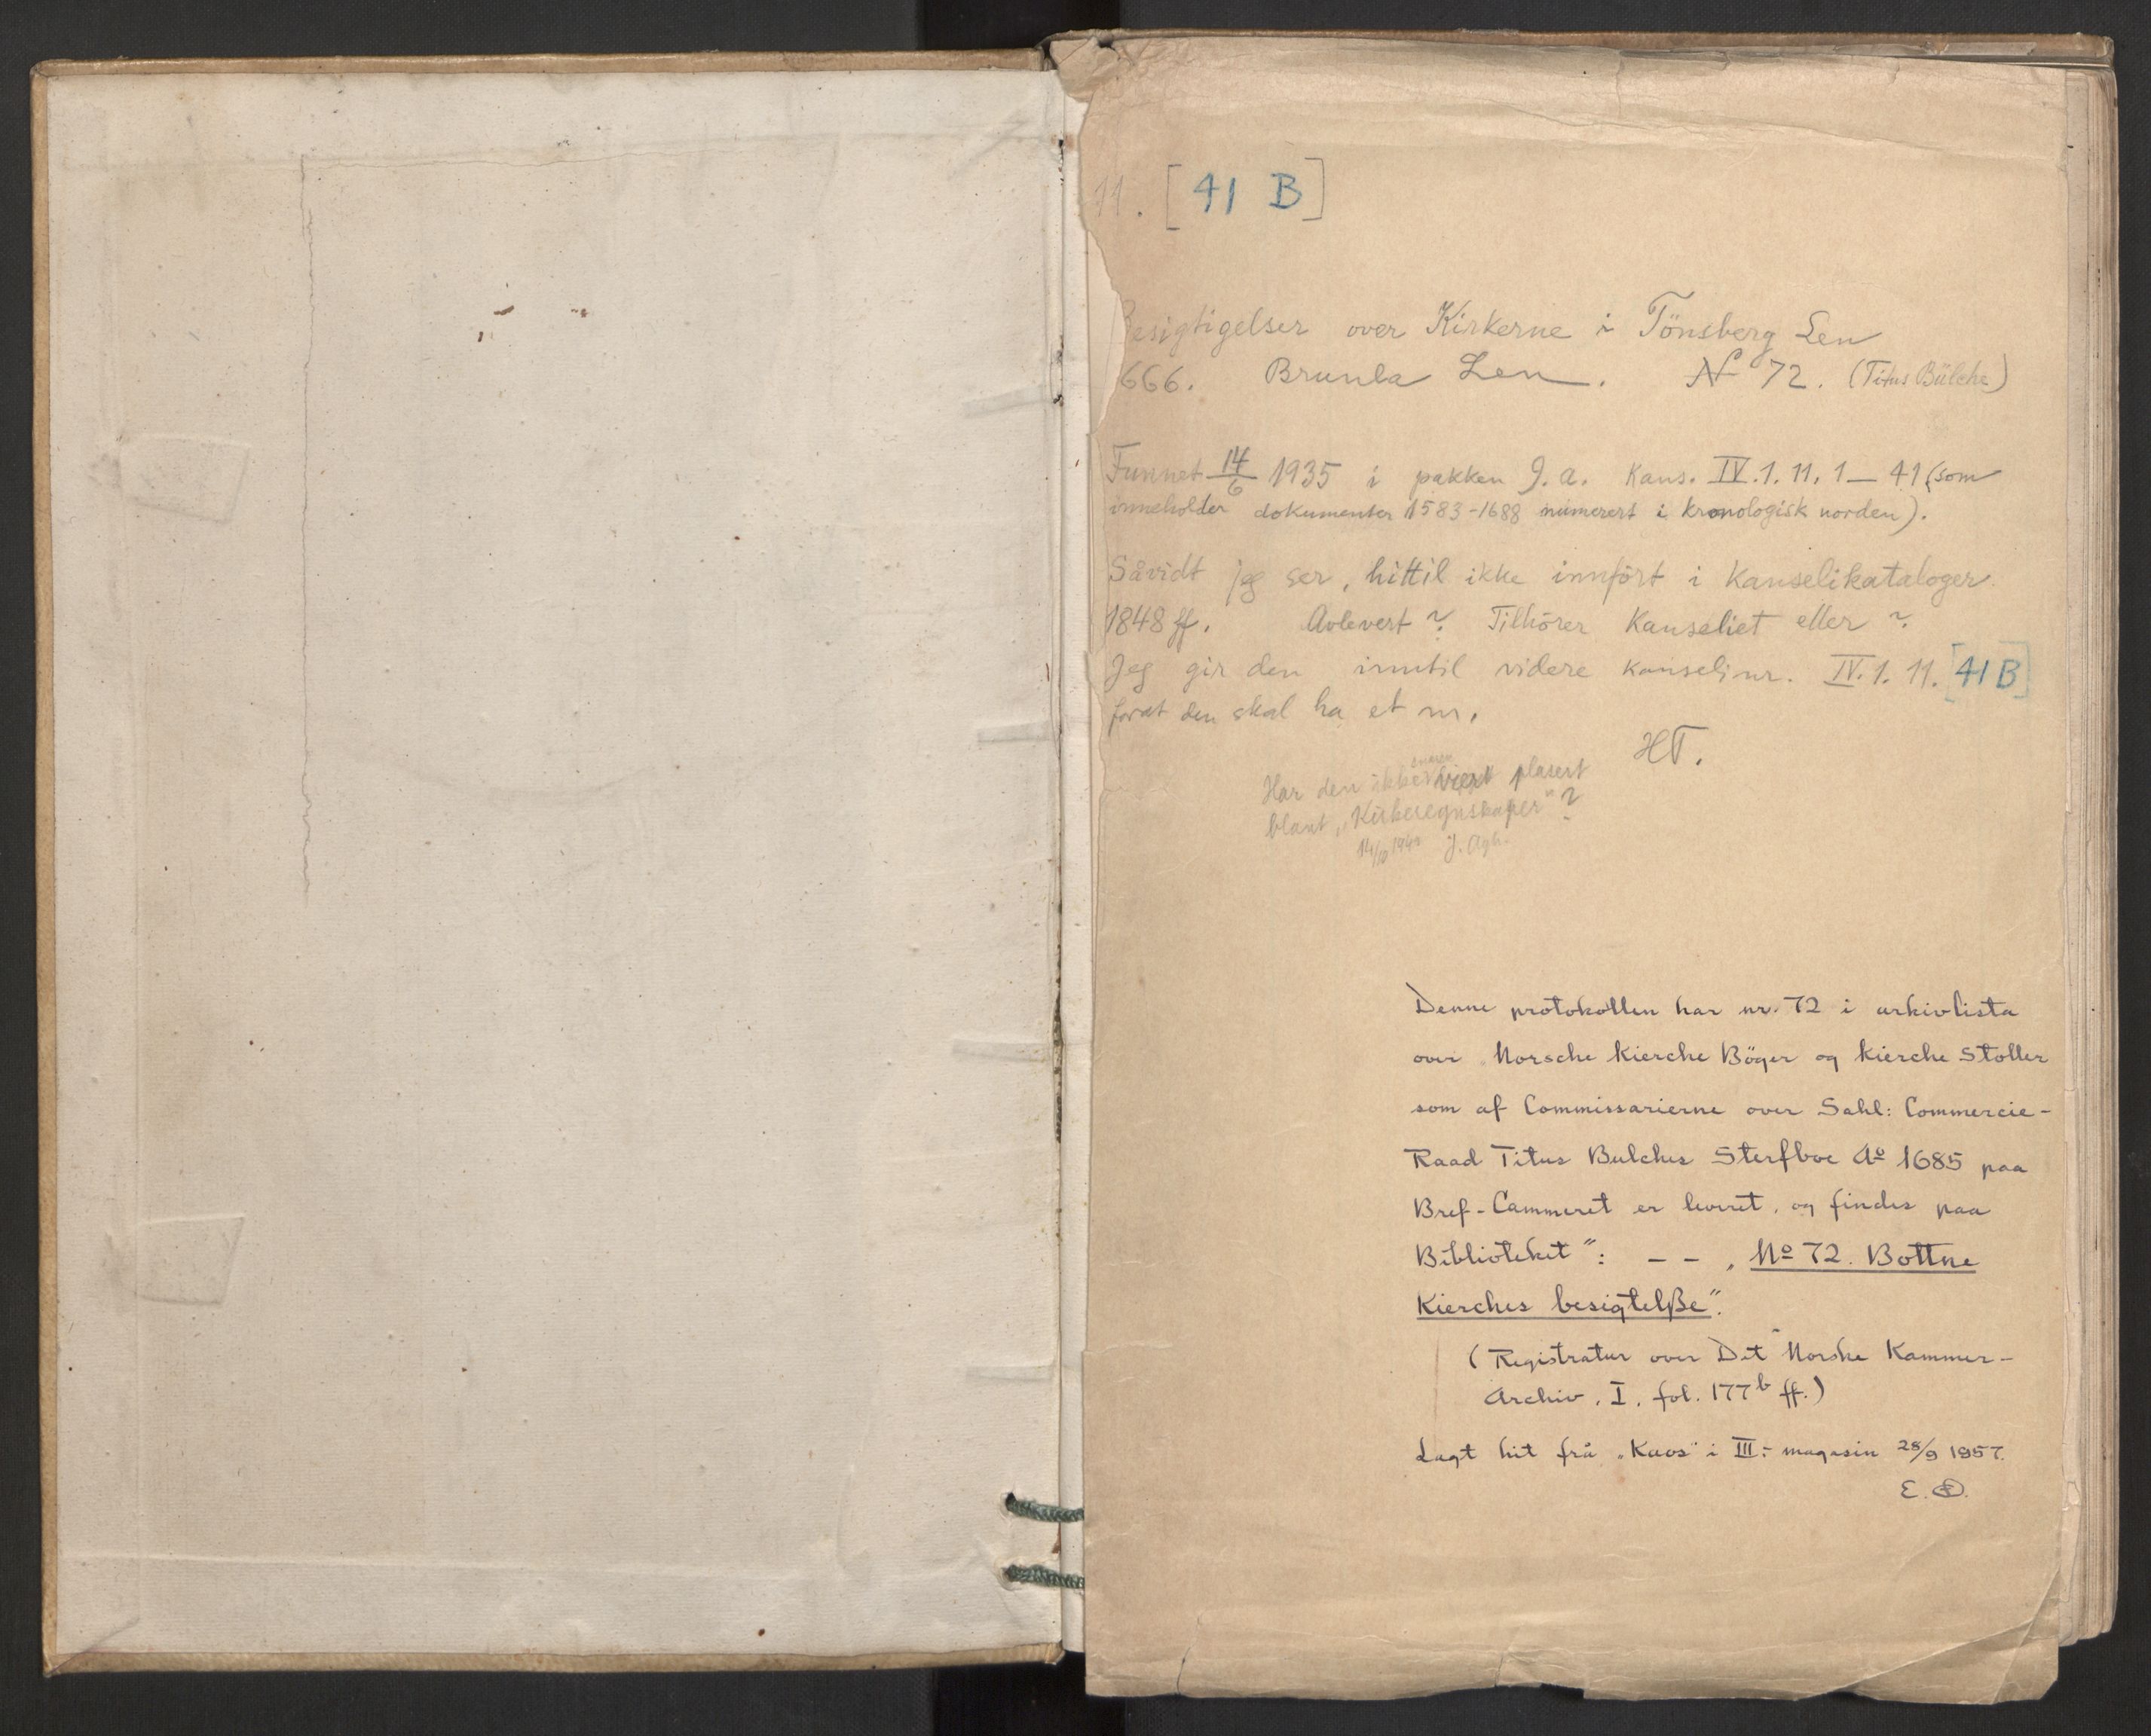 11. [41 B]
esigtigelser over Kirkerne i Tönsberg Len
666. Brunla Len. No 72. (Titus Bülche)
Funnet 14/6 1935 i pakken D.a. Kans. IV.1.11.1—41 (som
inneholder dokumenter 1583-1688 numerert i kronologisk norden).
Såvidt jeg ser, hittil ikke innført i Kanselikataloger
1848 ff. Avlevert? Tilhörer Kanseliet eller?
Jeg gir den inntil videre kanselinr. IV.1.11.[41B]
forat den skal ha et nr.
HT.
Har den ikke snarere vært plasert
blant „Kirkeregnskaper"?
14/10 194 J. Agh.
Denne protokollen har nr. 72 i arkivlista
over „Norsche Kierche Böger og Kierche Stoller
som af Commissarierne over Sahl: Commercie-
Raad Titus Bulches Sterfboe Aº 1685 paa
Bref-Cammeret er leveret, og findes paa
Biblioteket": – – „Nº 72. Bottne
Kierches besigtelße".
(Registratur over Det Norske Kammer-
Archiv, I, fol. 177b ff.)
Lagt hit frå „Kaos" i III. magasin 28/9 1957.